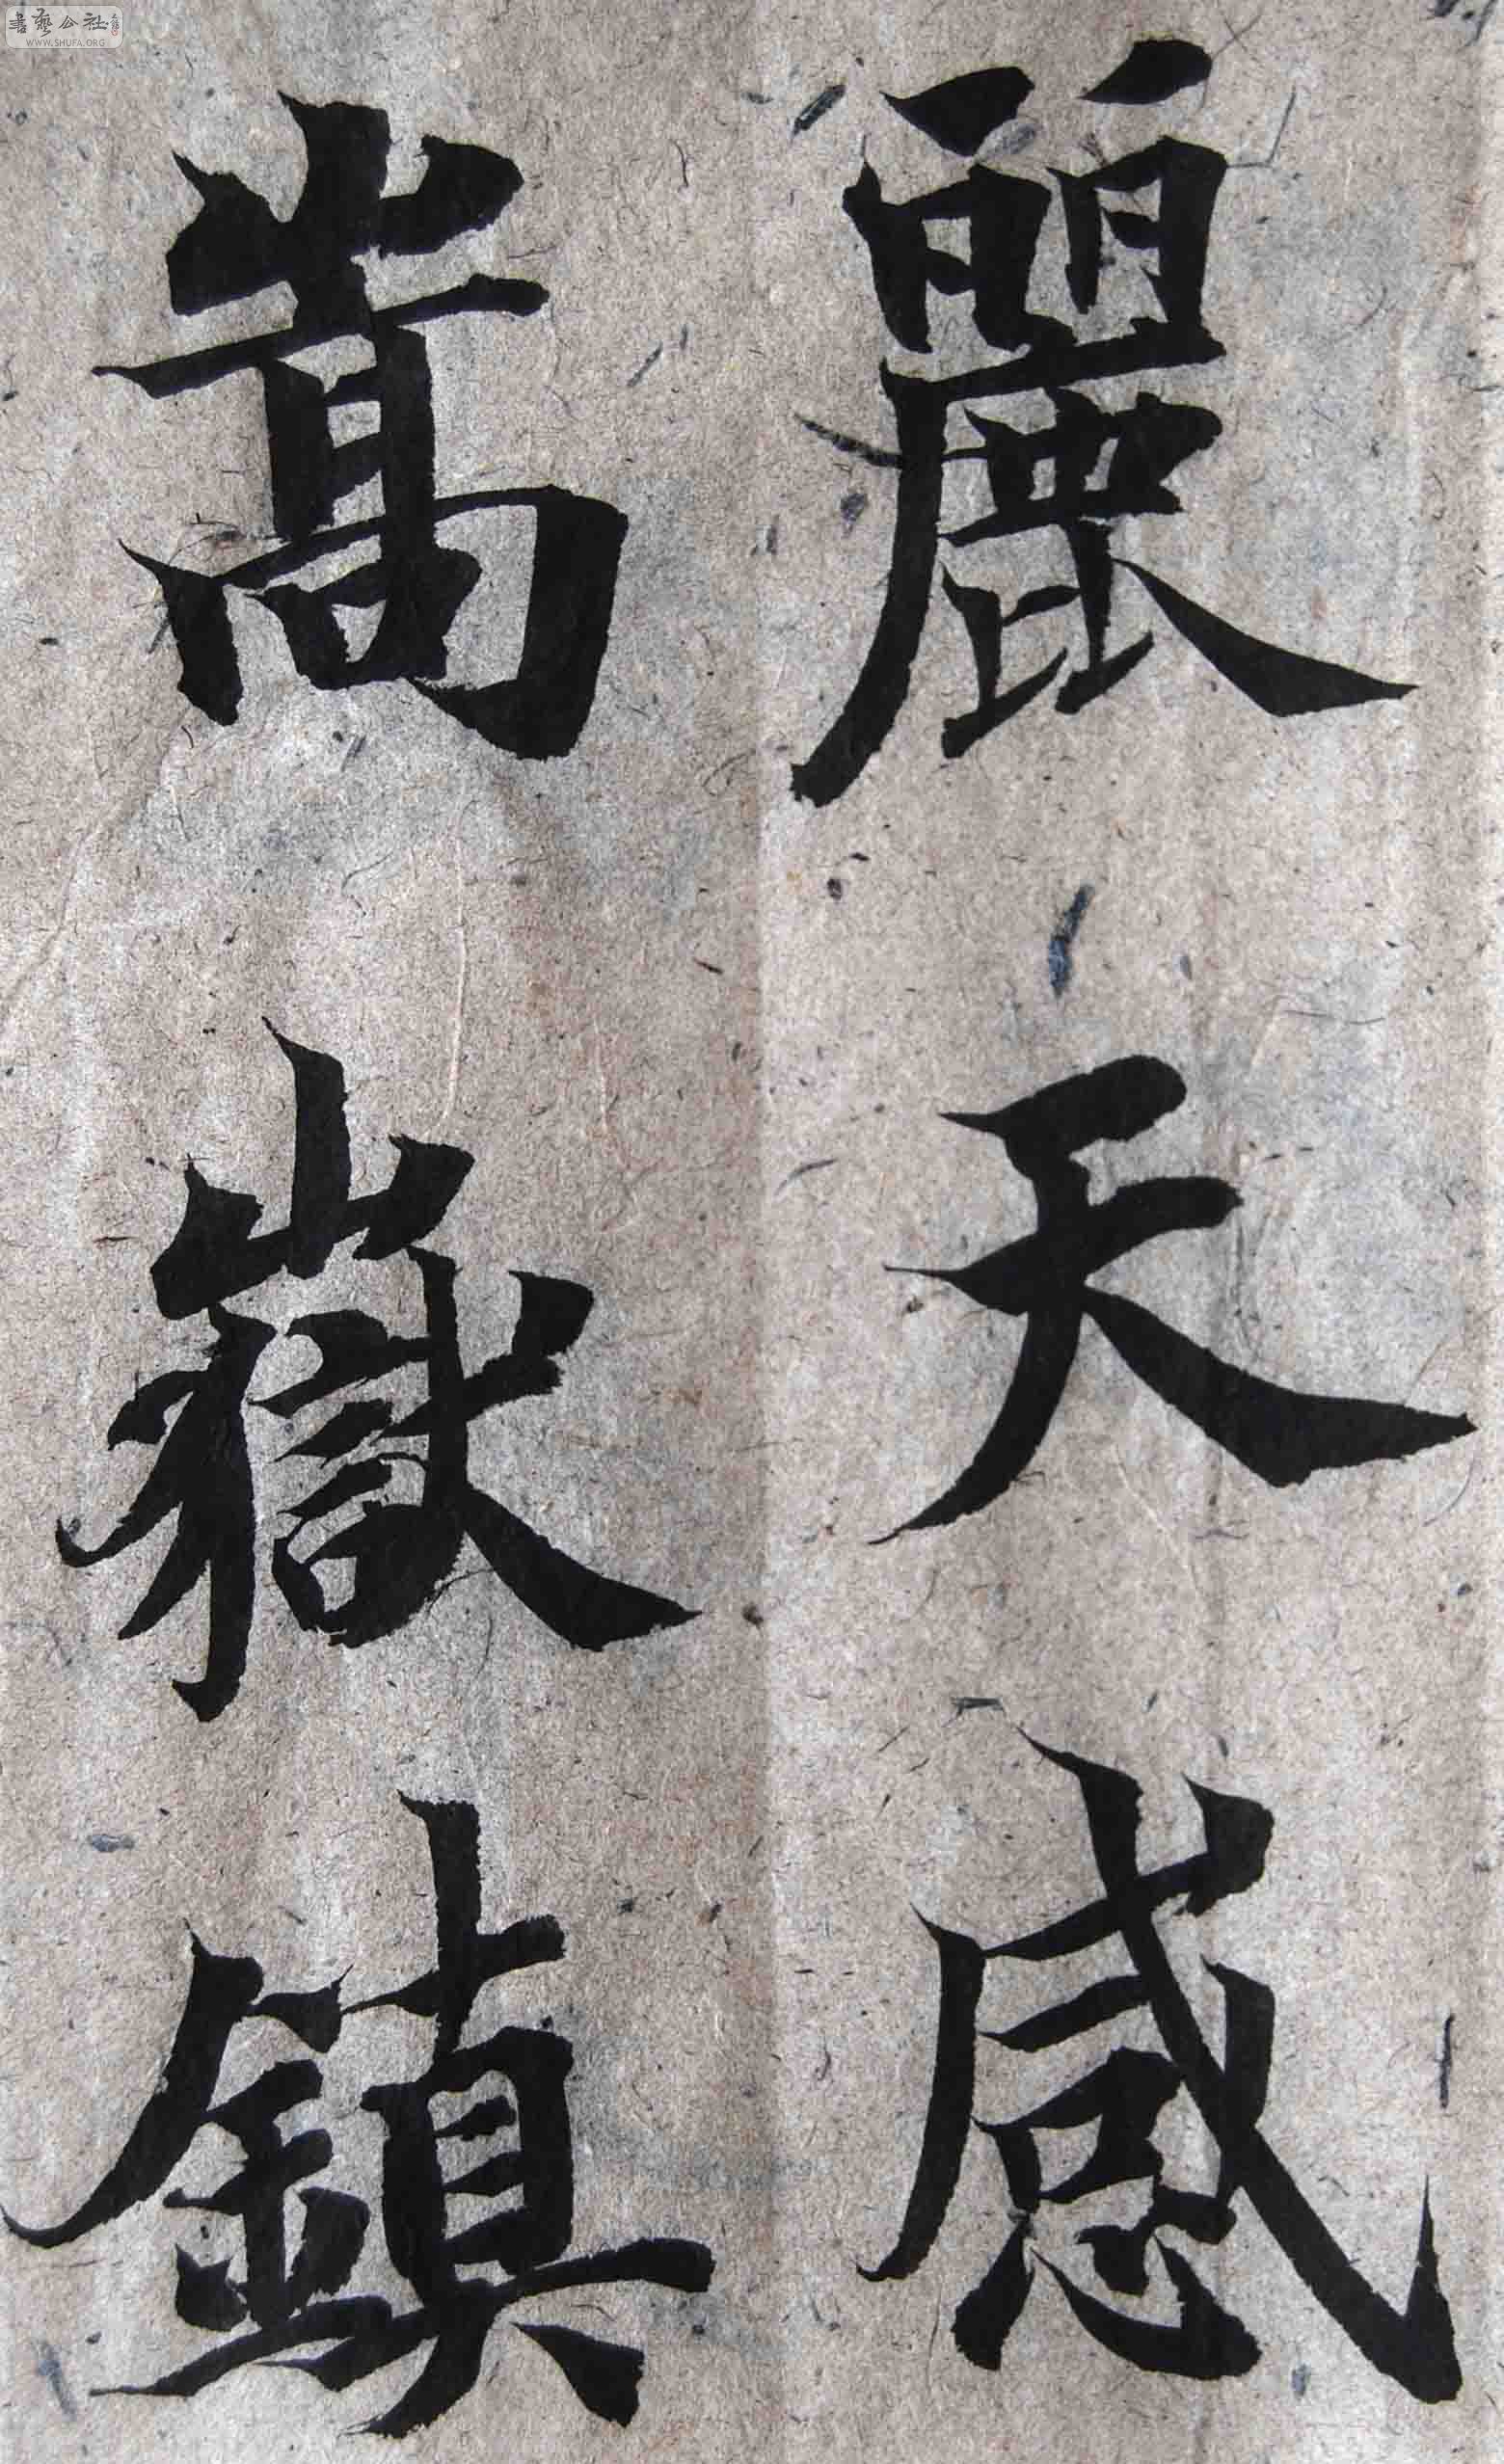 麗天感
嵩嶽鎮
書藝公社
WWW.SHUFA.ORG